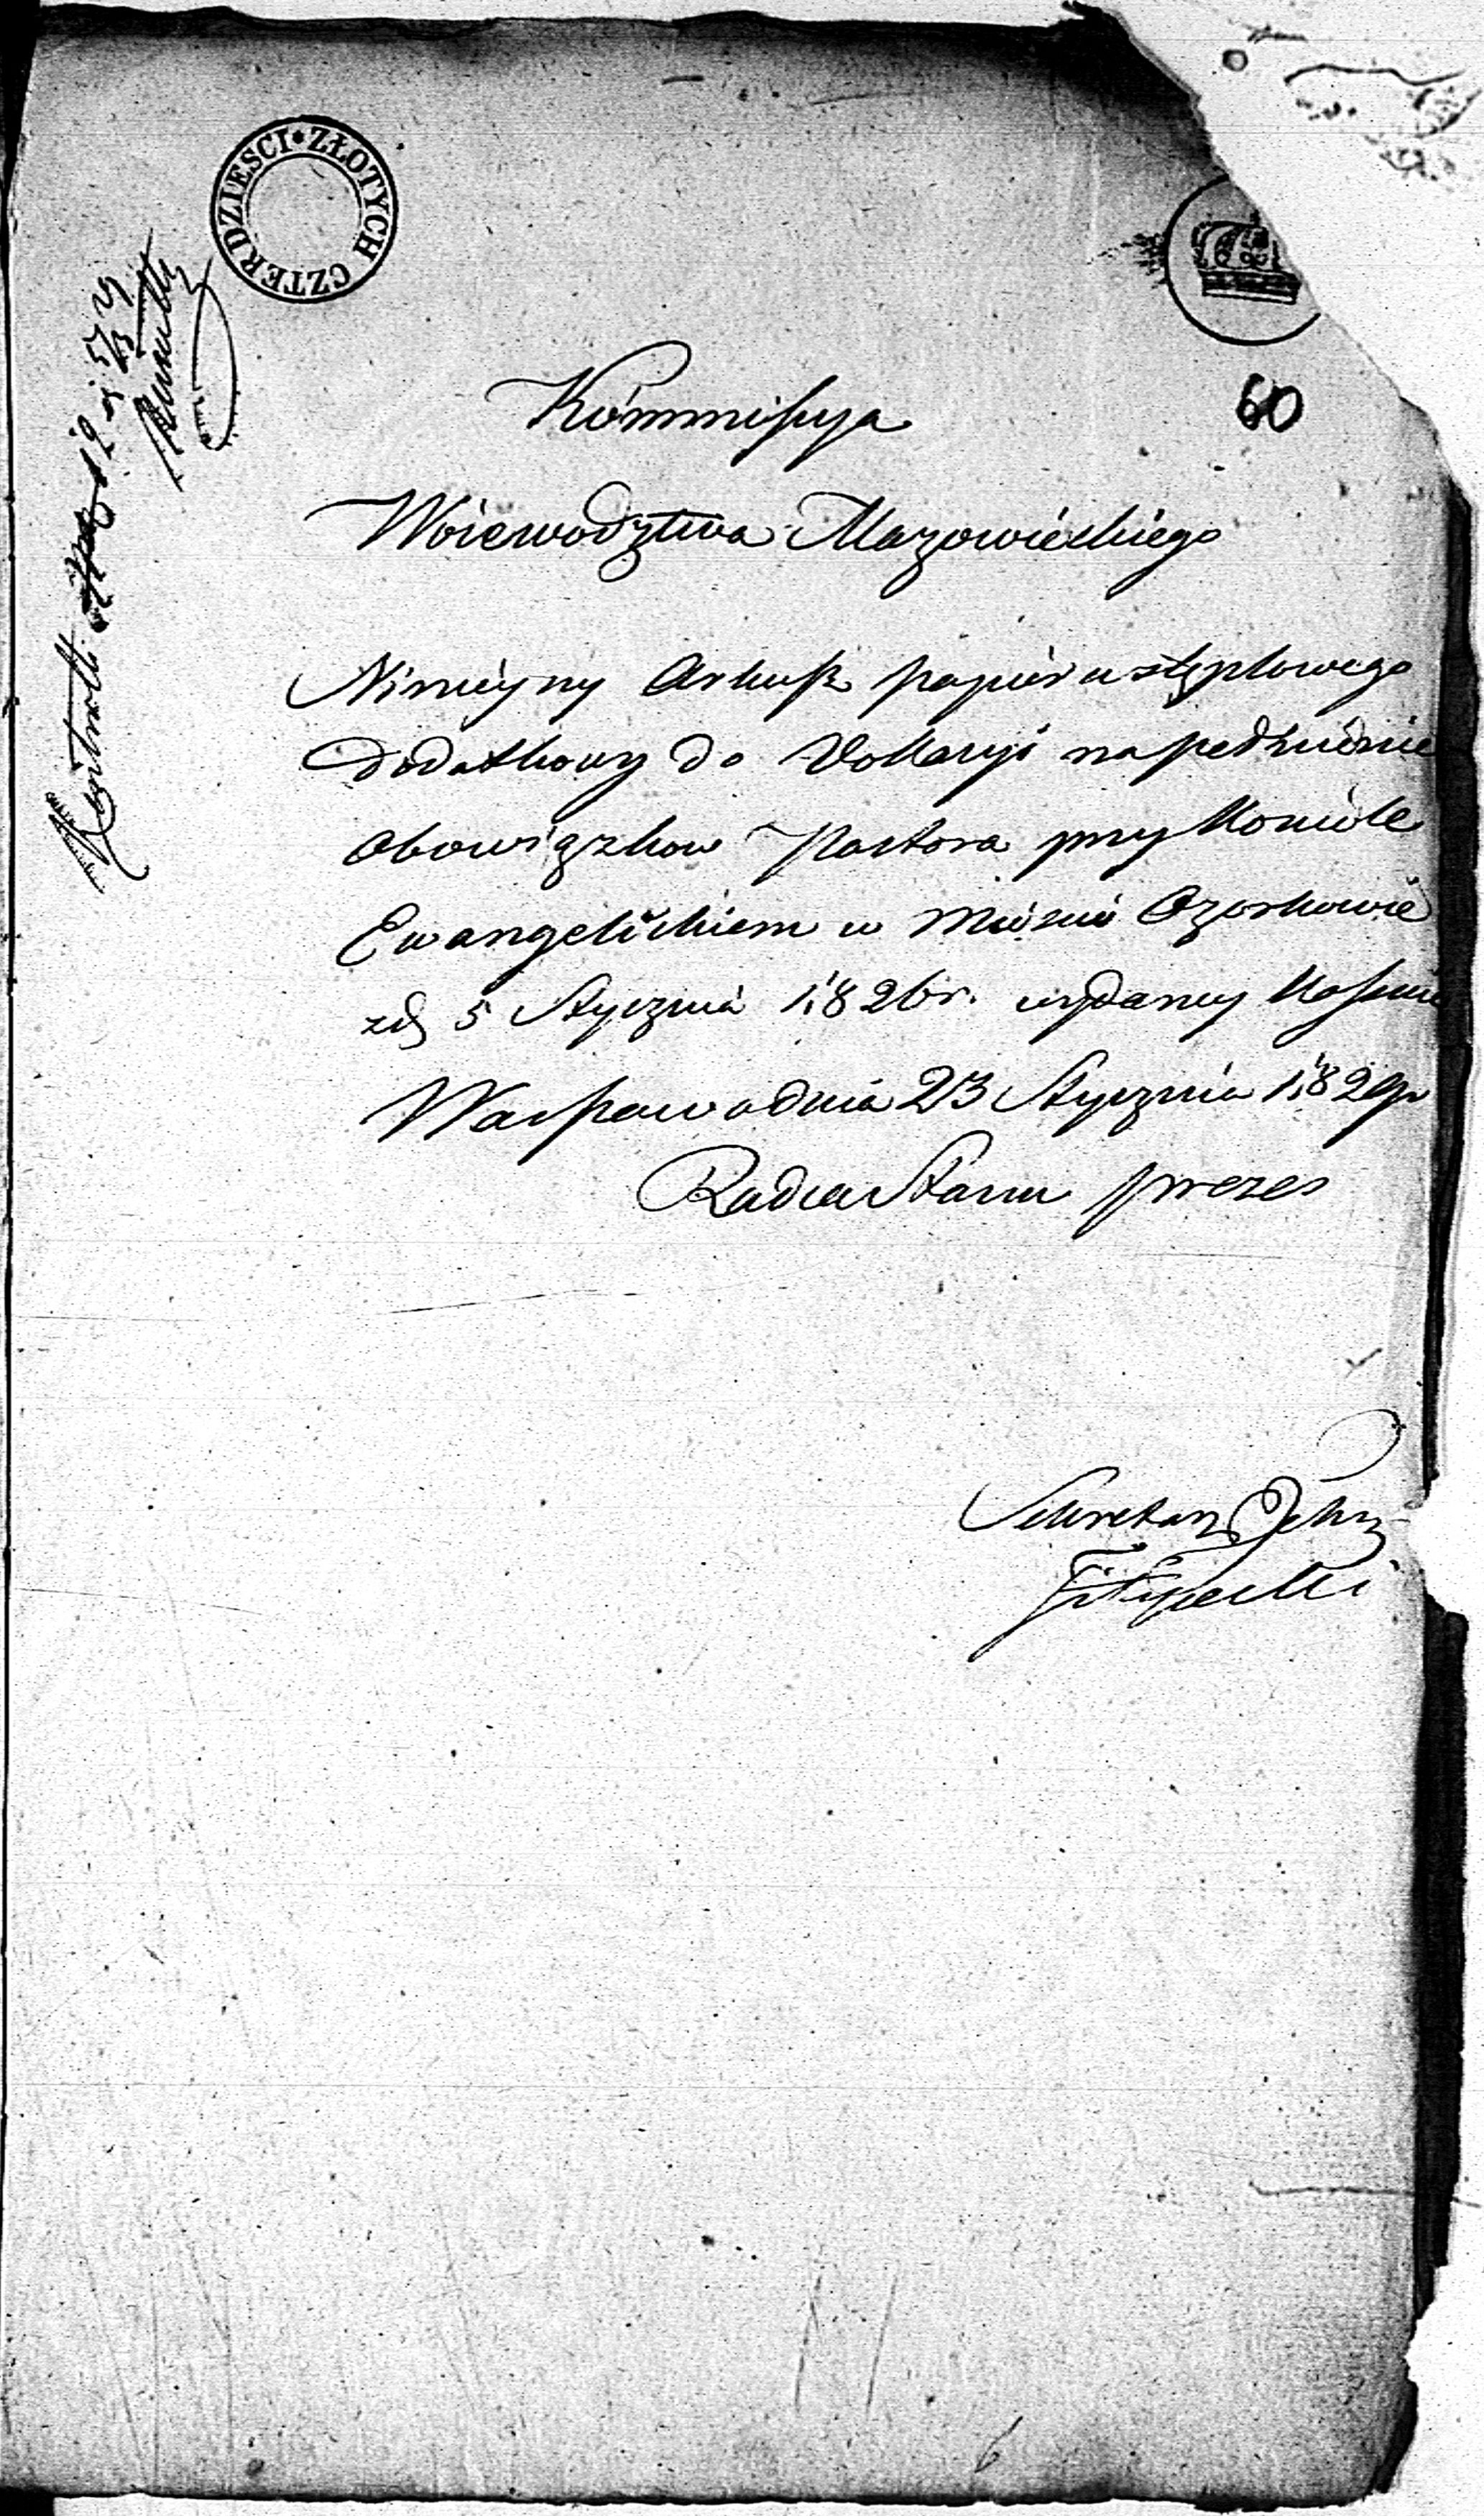 ZŁOTYCH CZTERDZIESCI
60
Kommissya
Woiewodztwa Mazowieckiego
Ninieyszy Arkusz papieru stęplowego
dodatkowy do Wokacyi na pełnienie
Obowiązkow Pastora przy Kościele
Ewangelickiem w Mieście Ozorkowie
zd 5 Stycznia 1826 r. wydany Kassuie
Warszawa dnia 23 Stycznia 1829 r
Radca Stanu prezes
Sekretarz Jlny
Filipecki